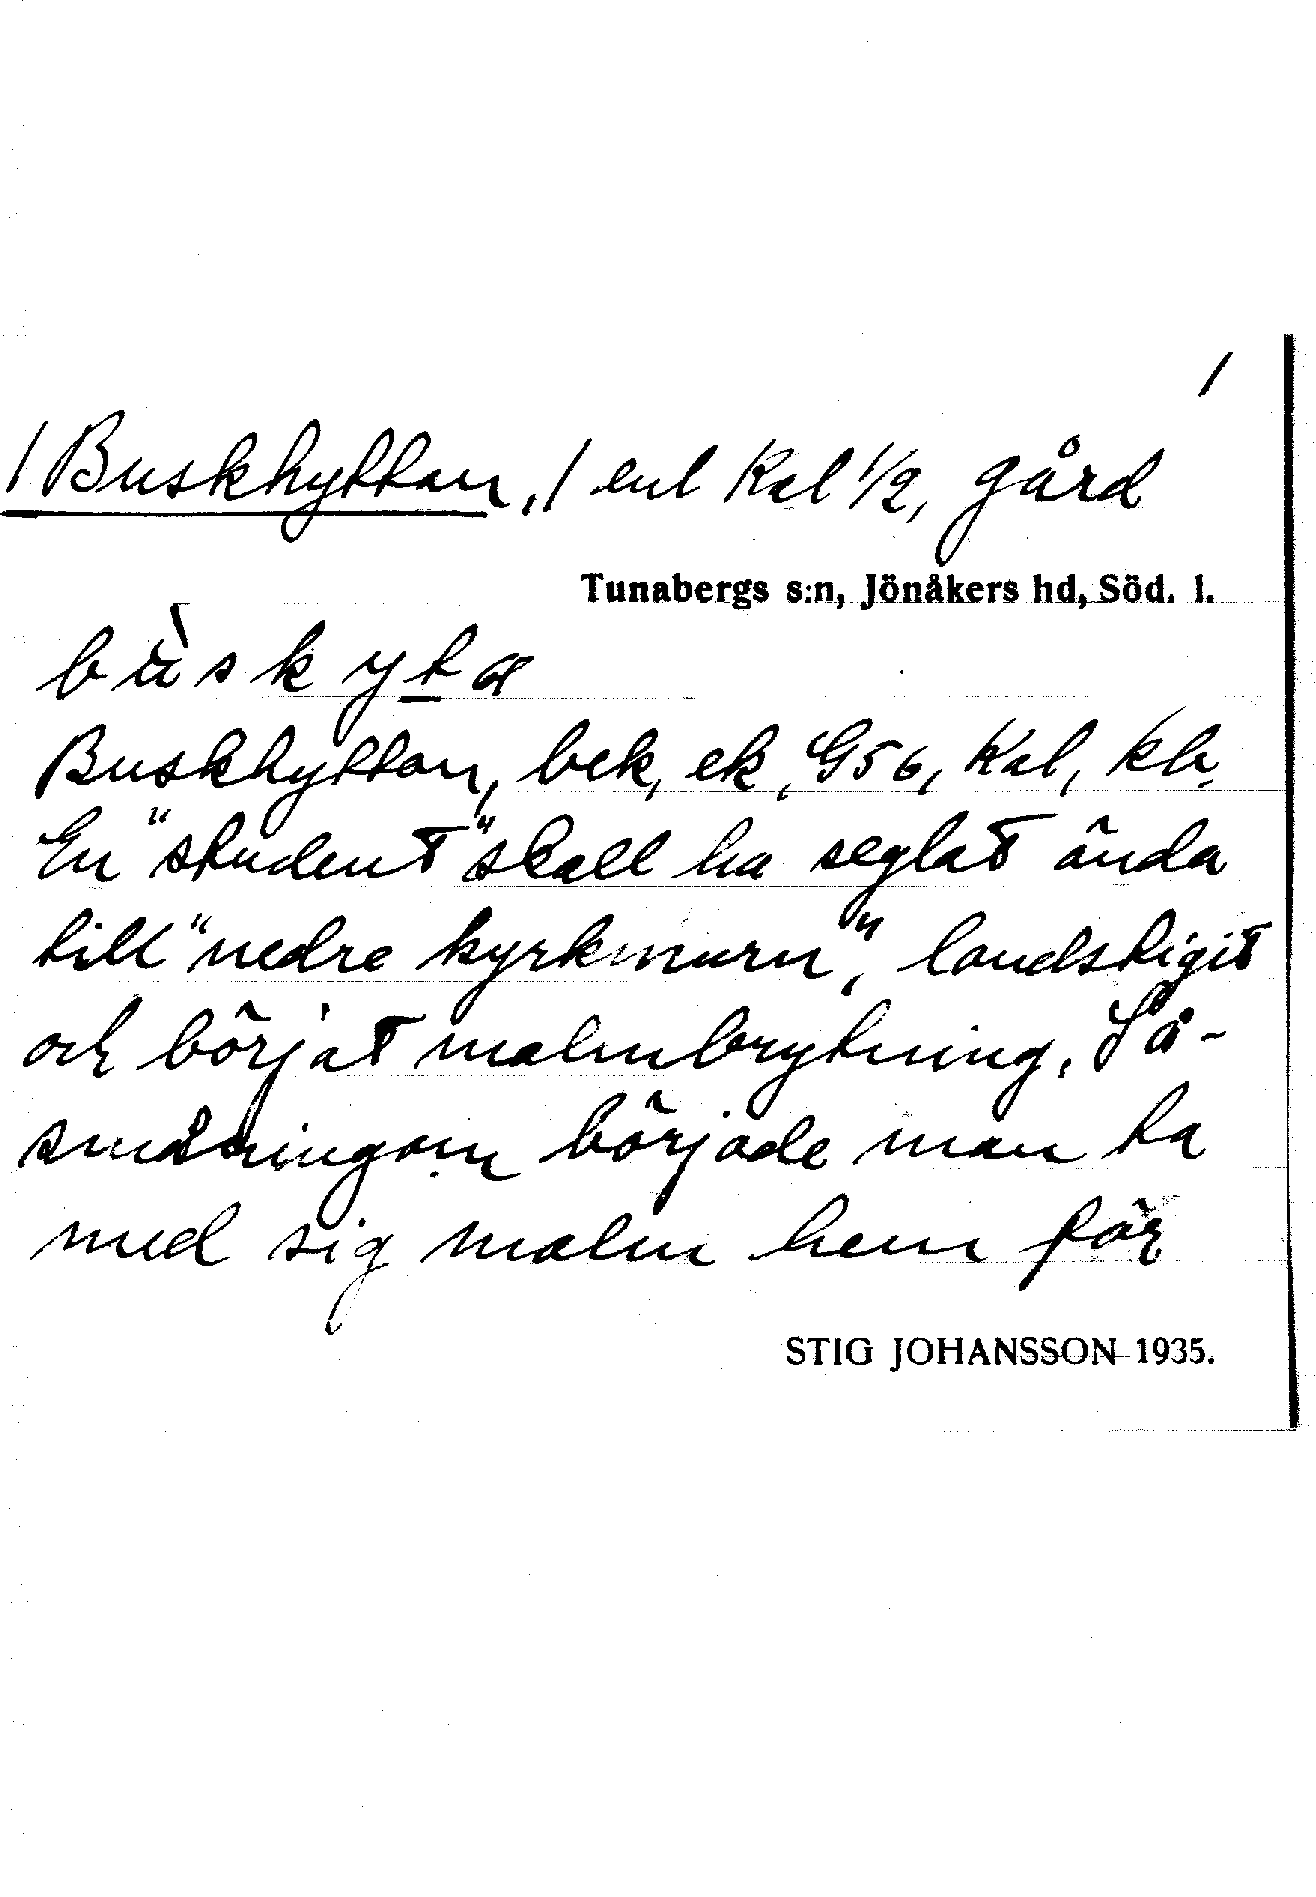 1
/Buskhyttan,/ enl Kal 1/2, gård
Tunabergs s:n, Jönåkers hd, Söd. l.
bùskyta
Buskhyttan, bek, ek, G56, Kal, kb.
En "student" skall ha seglat ända
till "nedre kyrkmurn", landstigit
och börjat malmbrytning. Så-
småningom började man ta
med sig malm hem för
STIG JOHANSSON 1935.